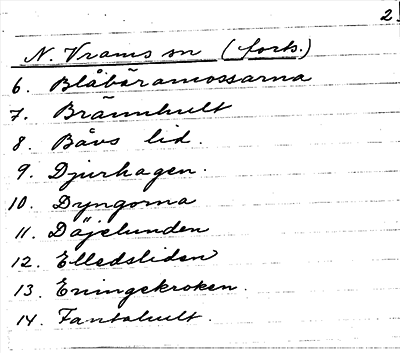 2.
N. Vrams sn (forts.)
6. Blåbäramossarna
7. Brännhult
8. Båvs lid.
9. Djurhagen.
10. Dyngorna
11. Döjelunden
12. Elledsliden
13. Eningekroken.
14. Fantahult.